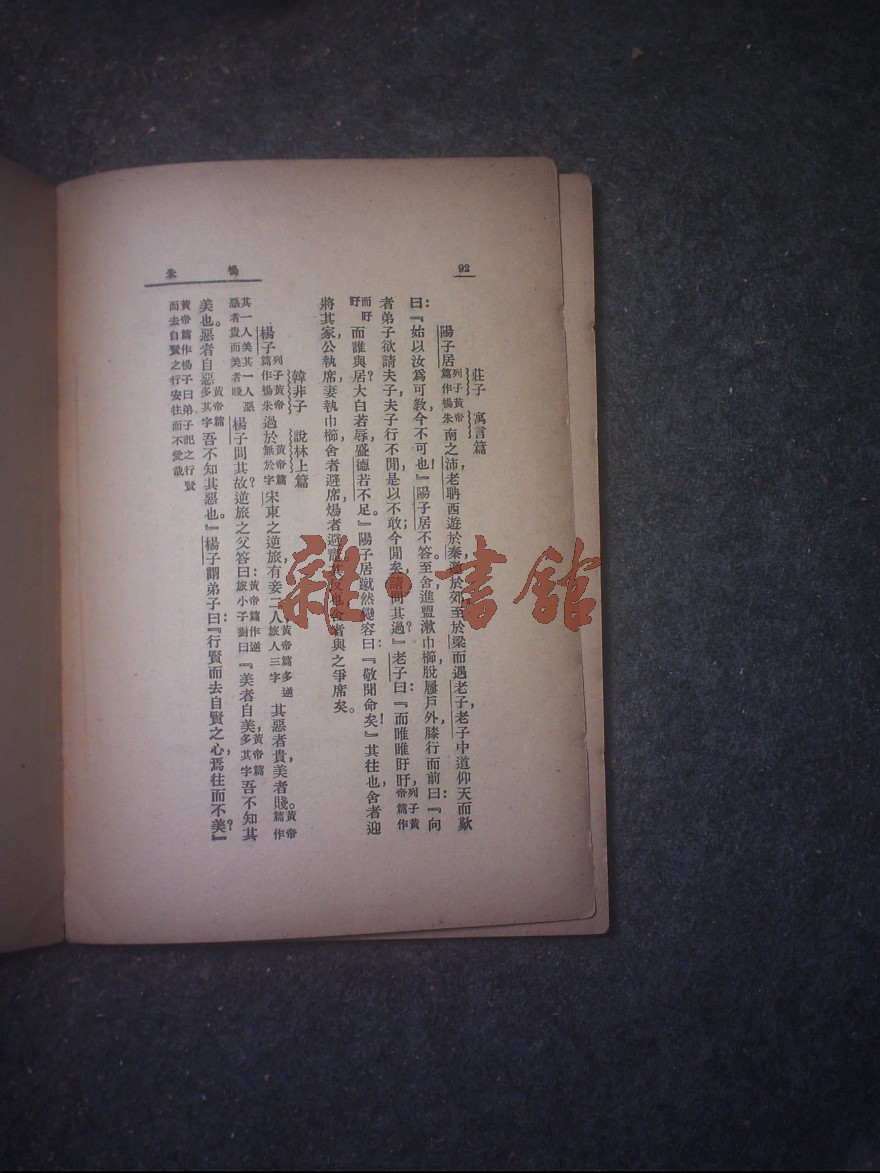 92
楊 朱
莊子 寓言篇
陽子居列子黃帝篇作楊朱南之沛,老聃西遊於秦,邀於郊,至於梁而遇老子。老子中道仰天而歎
曰:『始以汝爲可敎,今不可也!』陽子居不答。至舍,進盥漱巾櫛,脫屨戶外,膝行而前曰:『向
者弟子欲請夫子,夫子行不閒,是以不敢;今閒矣,請問其過?』老子曰:『而睢睢盱盱,列子黃帝篇作
而盱盱而誰與居?大白若辱,盛德若不足。』陽子居蹴然變容曰:『敬聞命矣!』其往也,舍者迎
將其家,公執席,妻執巾櫛,舍者避席,煬者避竈。其反也,舍者與之爭席矣。
韓非子 說林上篇
楊子列子黃帝篇作楊朱過於黃帝篇無於字宋東之逆旅,有妾二人,黃帝篇多逆旅人三字其惡者貴,美者賤。黃帝篇作
其一人美其一人惡惡者貴而美者賤楊子問其故?逆旅之父答曰:黃帝篇作逆旅小子對曰『美者自美,黃帝篇多其字吾不知其
美也。惡者自惡,黃帝篇多其字吾不知其惡也。』楊子謂弟子曰:『行賢而去自賢之心,焉往而不美?』
黃帝篇作楊子曰弟子記之行賢而去自賢之行安往而不愛哉
雜·書館